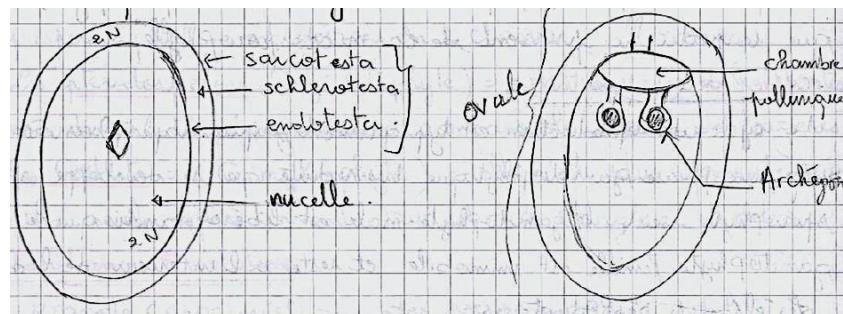 2N
sarcotesta
schlerotesta
endotesta.
nucelle.
2N
ovule
chambre
pollinique
Archégon